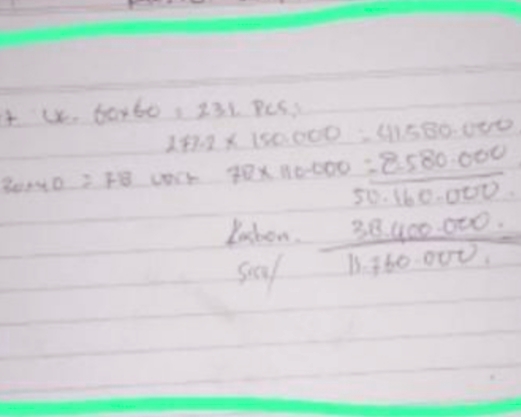 uk. 60x60 : 231 Pcs.
277.2 x 150.000 = 41.580.000
= 78 78 x 110.000 = 8.580.000
50.160.000.
38.400.000.
Sisa/ 11.760.000.